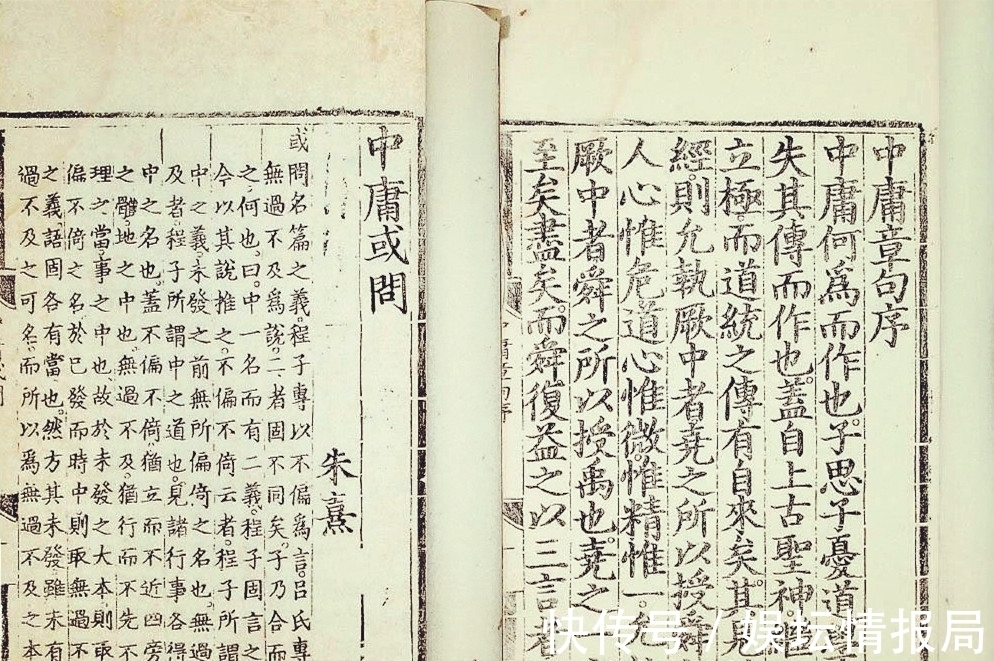 中庸章句序
中庸何爲而作也。子思子憂道
失其傳而作也。蓋自上古聖神。
立極而道統之傳有自來矣。其見
經。則允執厥中者堯之所以授舜
人心惟危道心惟微。惟精惟一。允
厥中者舜之所以授禹也。堯之
至矣盡矣。而舜復益之以三言者
中庸或問
朱熹
或問名篇之義。程子專以不偏爲言。呂氏專
無過不及爲說。二者固不同矣。子乃合而
之。何也。曰。中一名而有二義。程子固言之
今以其說推之。不偏不倚云者。程子所謂
中之義。未發之前無所偏倚之名也。無過
及者。程子所謂中之道也。見諸行事各得
中之名也。蓋不偏不倚。猶立而不近四旁
之體。地之中也。無過不及。猶行而不先不
理之當。事之中也。故於未發之大本。則取
偏不倚之名。於已發而時中。則取無過不
之義。語固各有當也。然方其未發。雖未有
過不及之可名。而所以爲無過不及之本
快传号 / 娱坛情报局